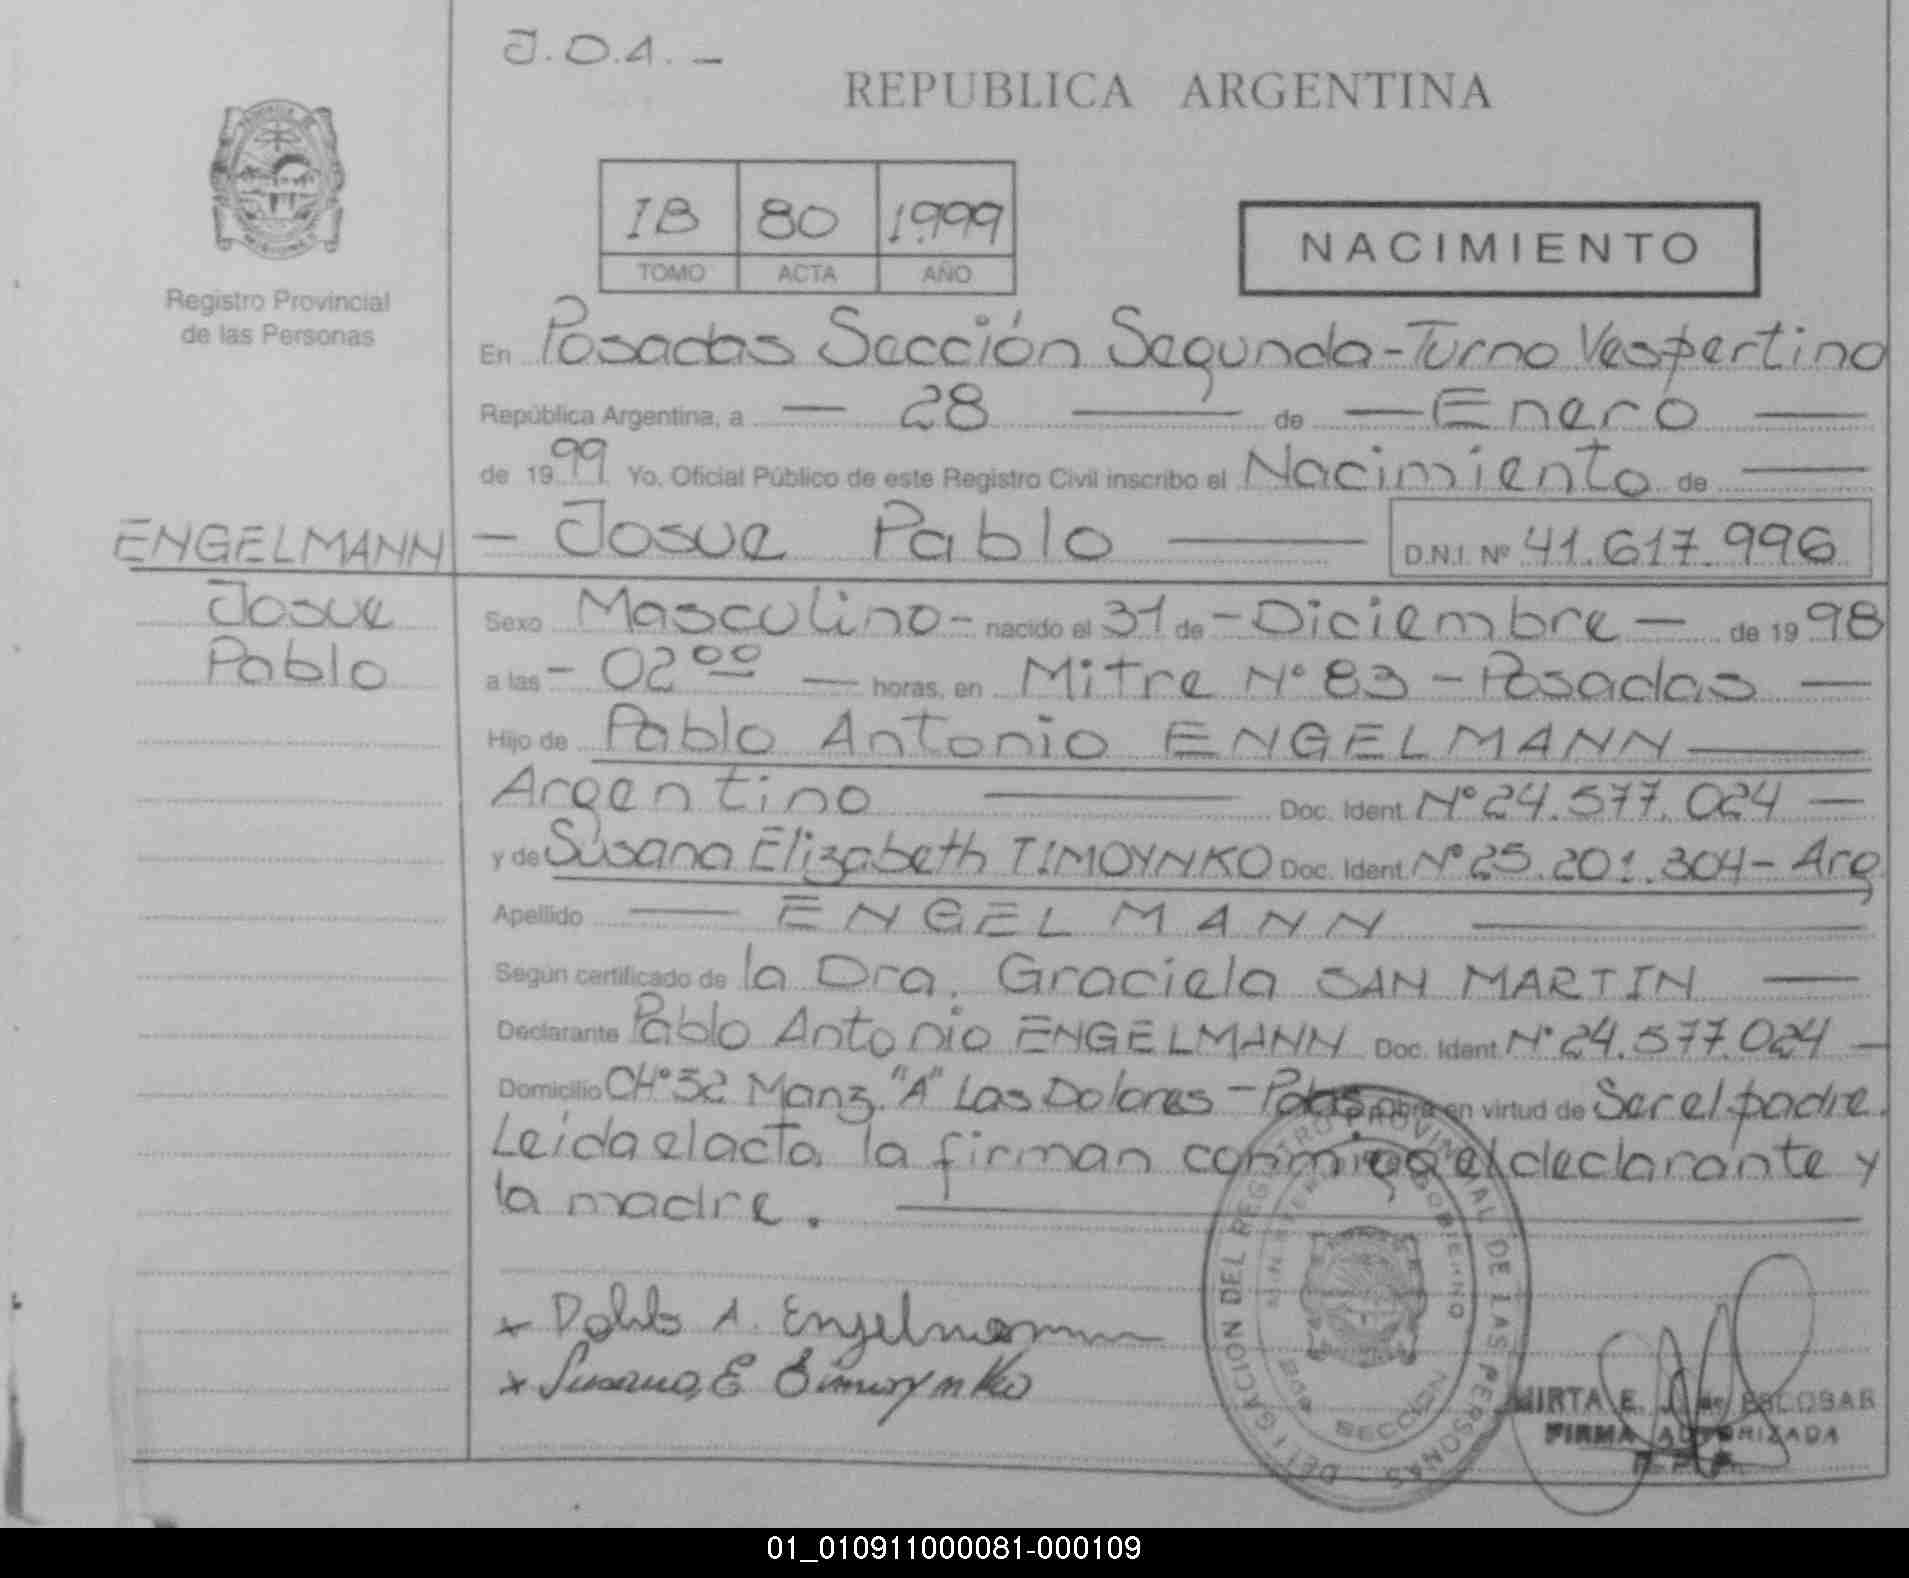 J.O.A. -
REPUBLICA ARGENTINA
IB 80 1.999
TOMO ACTA AÑO
NACIMIENTO
Registro Provincial
de las Personas
En Posadas Sección Segunda - Turno Vespertino
República Argentina, a — 28 — de — Enero —
de 1999 Yo. Oficial Público de este Registro Civil inscribo el Nacimiento de —
ENGELMANN — Josue Pablo — D.N.I. Nº 41.617.996
Josue
Pablo
Sexo Masculino - nacido el 31 de - Diciembre — de 1998
a las - 02 00 — horas, en Mitre Nº 83 - Posadas —
Hijo de Pablo Antonio ENGELMANN —
Argentino — Doc. Ident. Nº 24.577.024 —
y de Susana Elizabeth TIMOYNKO Doc. Ident. Nº 25.201.304 - Arg
Apellido — ENGELMANN —
Según certificado de la Dra. Graciela SAN MARTIN —
Declarante Pablo Antonio ENGELMANN Doc. Ident. Nº 24.577.024 —
Domicilio CHº 32 Manz. "A" Las Dolores - Pdas. obra en virtud de Ser el padre.
Leída el acta, la firman conmigo el declarante y
la madre. —
x Pablo A. Engelmann
x Susana, E Timoynko
DELEGACION DEL REGISTRO PROVINCIAL DE LAS PERSONAS
GOBIERNO
SECCION
MIRTA E. J. de ESCOBAR
FIRMA AUTORIZADA
R. P. P.
01_010911000081-000109